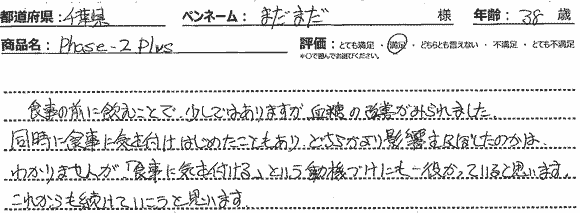 都道府県：千葉県 ペンネーム：まだまだ 様 年齢：38 歳
商品名：Phase-2 Plus 評価：とても満足 ・ 満足 ・ どちらとも言えない ・ 不満足 ・ とても不満足
※○で囲んでお選びください。
食事の前に飲むことで、少しではありますが、血糖の改善がみられました。
同時に食事に気を付けはじめたこともあり、どちらがより影響を及ぼしたのかは
わかりませんが「食事に気を付ける」という動機づけにも一役かっていると思います。
これからも続けていこうと思います。